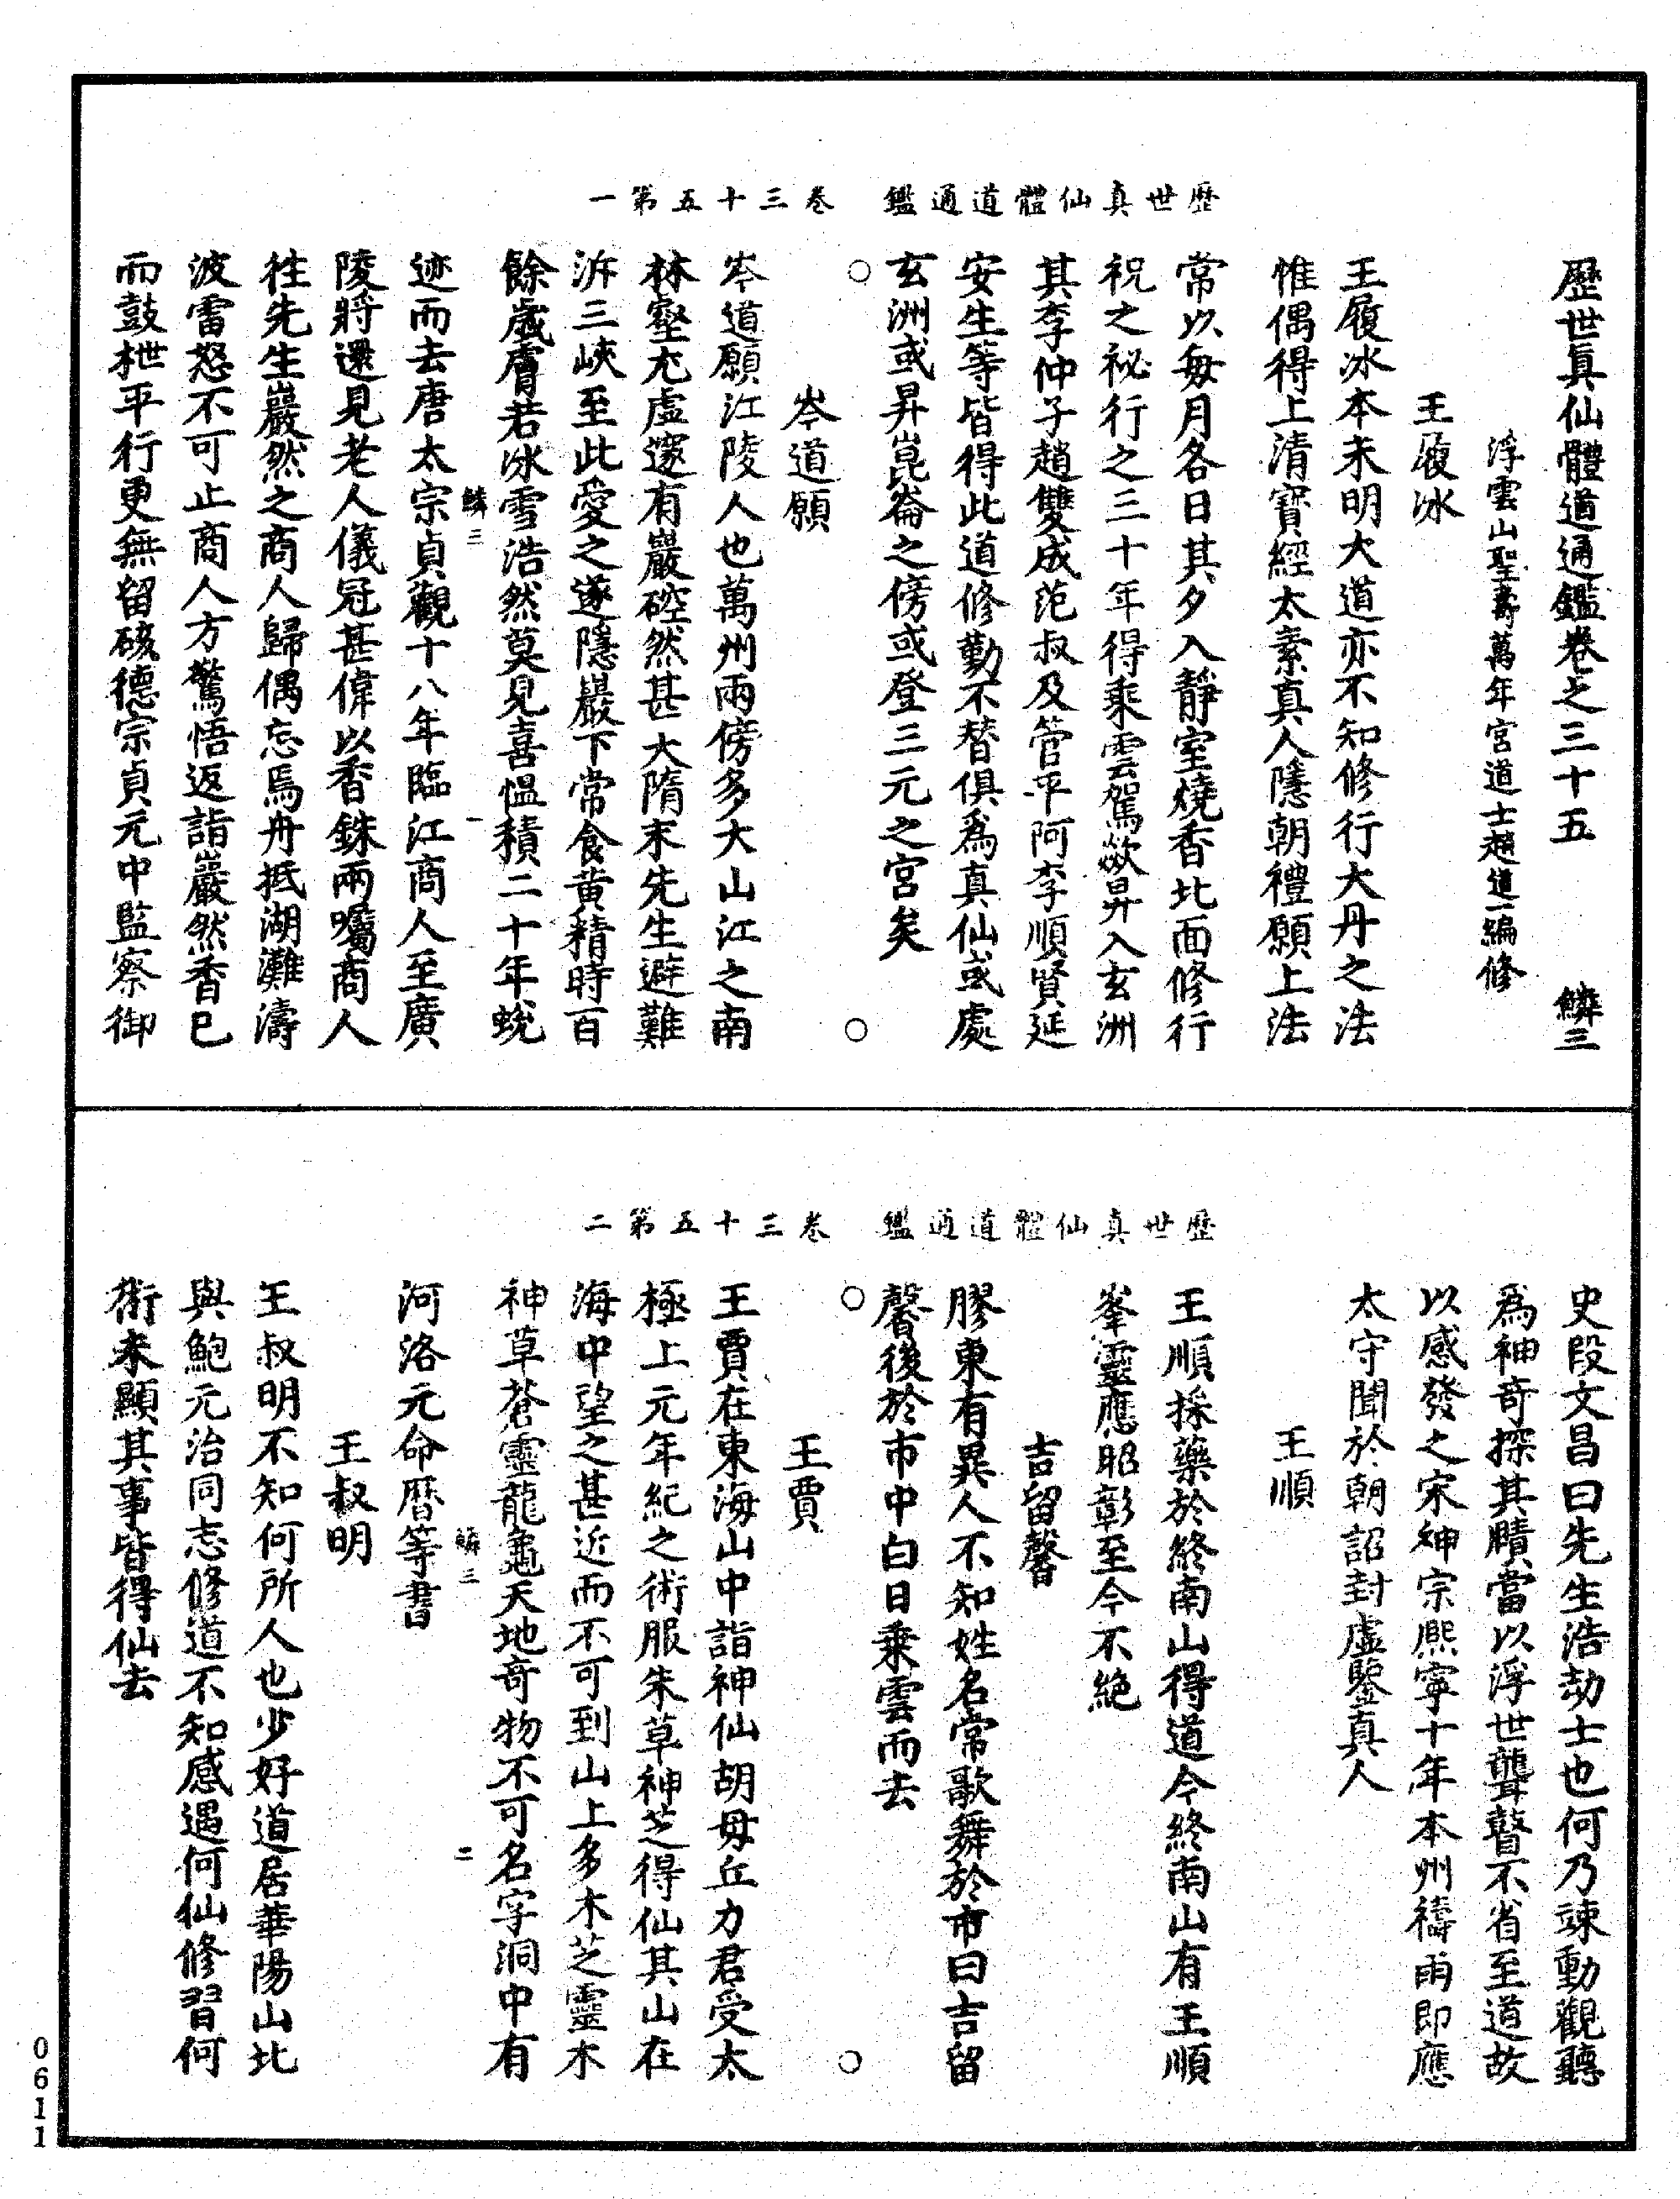 歷世真仙體道通鑑　卷三十五第一
歷世眞仙體道通鑑卷之三十五　鱗三
浮雲山聖壽萬年宮道士趙道一編修
王履冰
王履冰本未明大道亦不知修行大丹之法
惟偶得上清寶經太素真人隱朝禮願上法
常以每月各日其夕入靜室燒香北面修行
祝之祕行之三十年得乘雲駕歘昇入玄洲
其李仲子趙雙成范叔及管平阿李順賢延
安生等皆得此道修勤不替俱爲真仙或處
玄洲或昇崑崙之傍或登三元之宮矣
岑道願
岑道願江陵人也萬州兩傍多大山江之南
林壑尤虛邃有巖硿然甚大隋末先生避難
泝三峽至此愛之遂隱巖下常食黄精時百
餘歲膚若冰雪浩然莫見喜慍積二十年蛻
鱗三　一
迹而去唐太宗貞觀十八年臨江商人至廣
陵將還見老人儀冠甚偉以香銖兩囑商人
徃先生巖然之商人歸偶忘焉舟抵湖灘濤
波雷怒不可止商人方驚悟返詣巖然香已
而鼓枻平行更無留礙德宗貞元中監察御
歷世真仙體道通鑑　卷三十五第二
史段文昌曰先生浩劫士也何乃竦動觀聽
爲神奇探其賾當以浮世聾瞽不省至道故
以感發之宋神宗熙寧十年本州禱雨即應
太守聞於朝詔封虛鑒真人
王順
王順採藥於終南山得道今終南山有王順
峯靈應昭彰至今不絶
吉留馨
膠東有異人不知姓名常歌舞於市曰吉留
馨後於市中白日乗雲而去
王賈
王賈在東海山中詣神仙胡毋丘力君受太
極上元年紀之術服朱草神芝得仙其山在
海中望之甚近而不可到山上多木芝靈木
神草蒼靈龍龜天地奇物不可名字洞中有
鱗三　二
河洛元命曆等書
王叔明
王叔明不知何所人也少好道居華陽山北
與鮑元治同志修道不知感遇何仙修習何
術未顯其事皆得仙去
0611